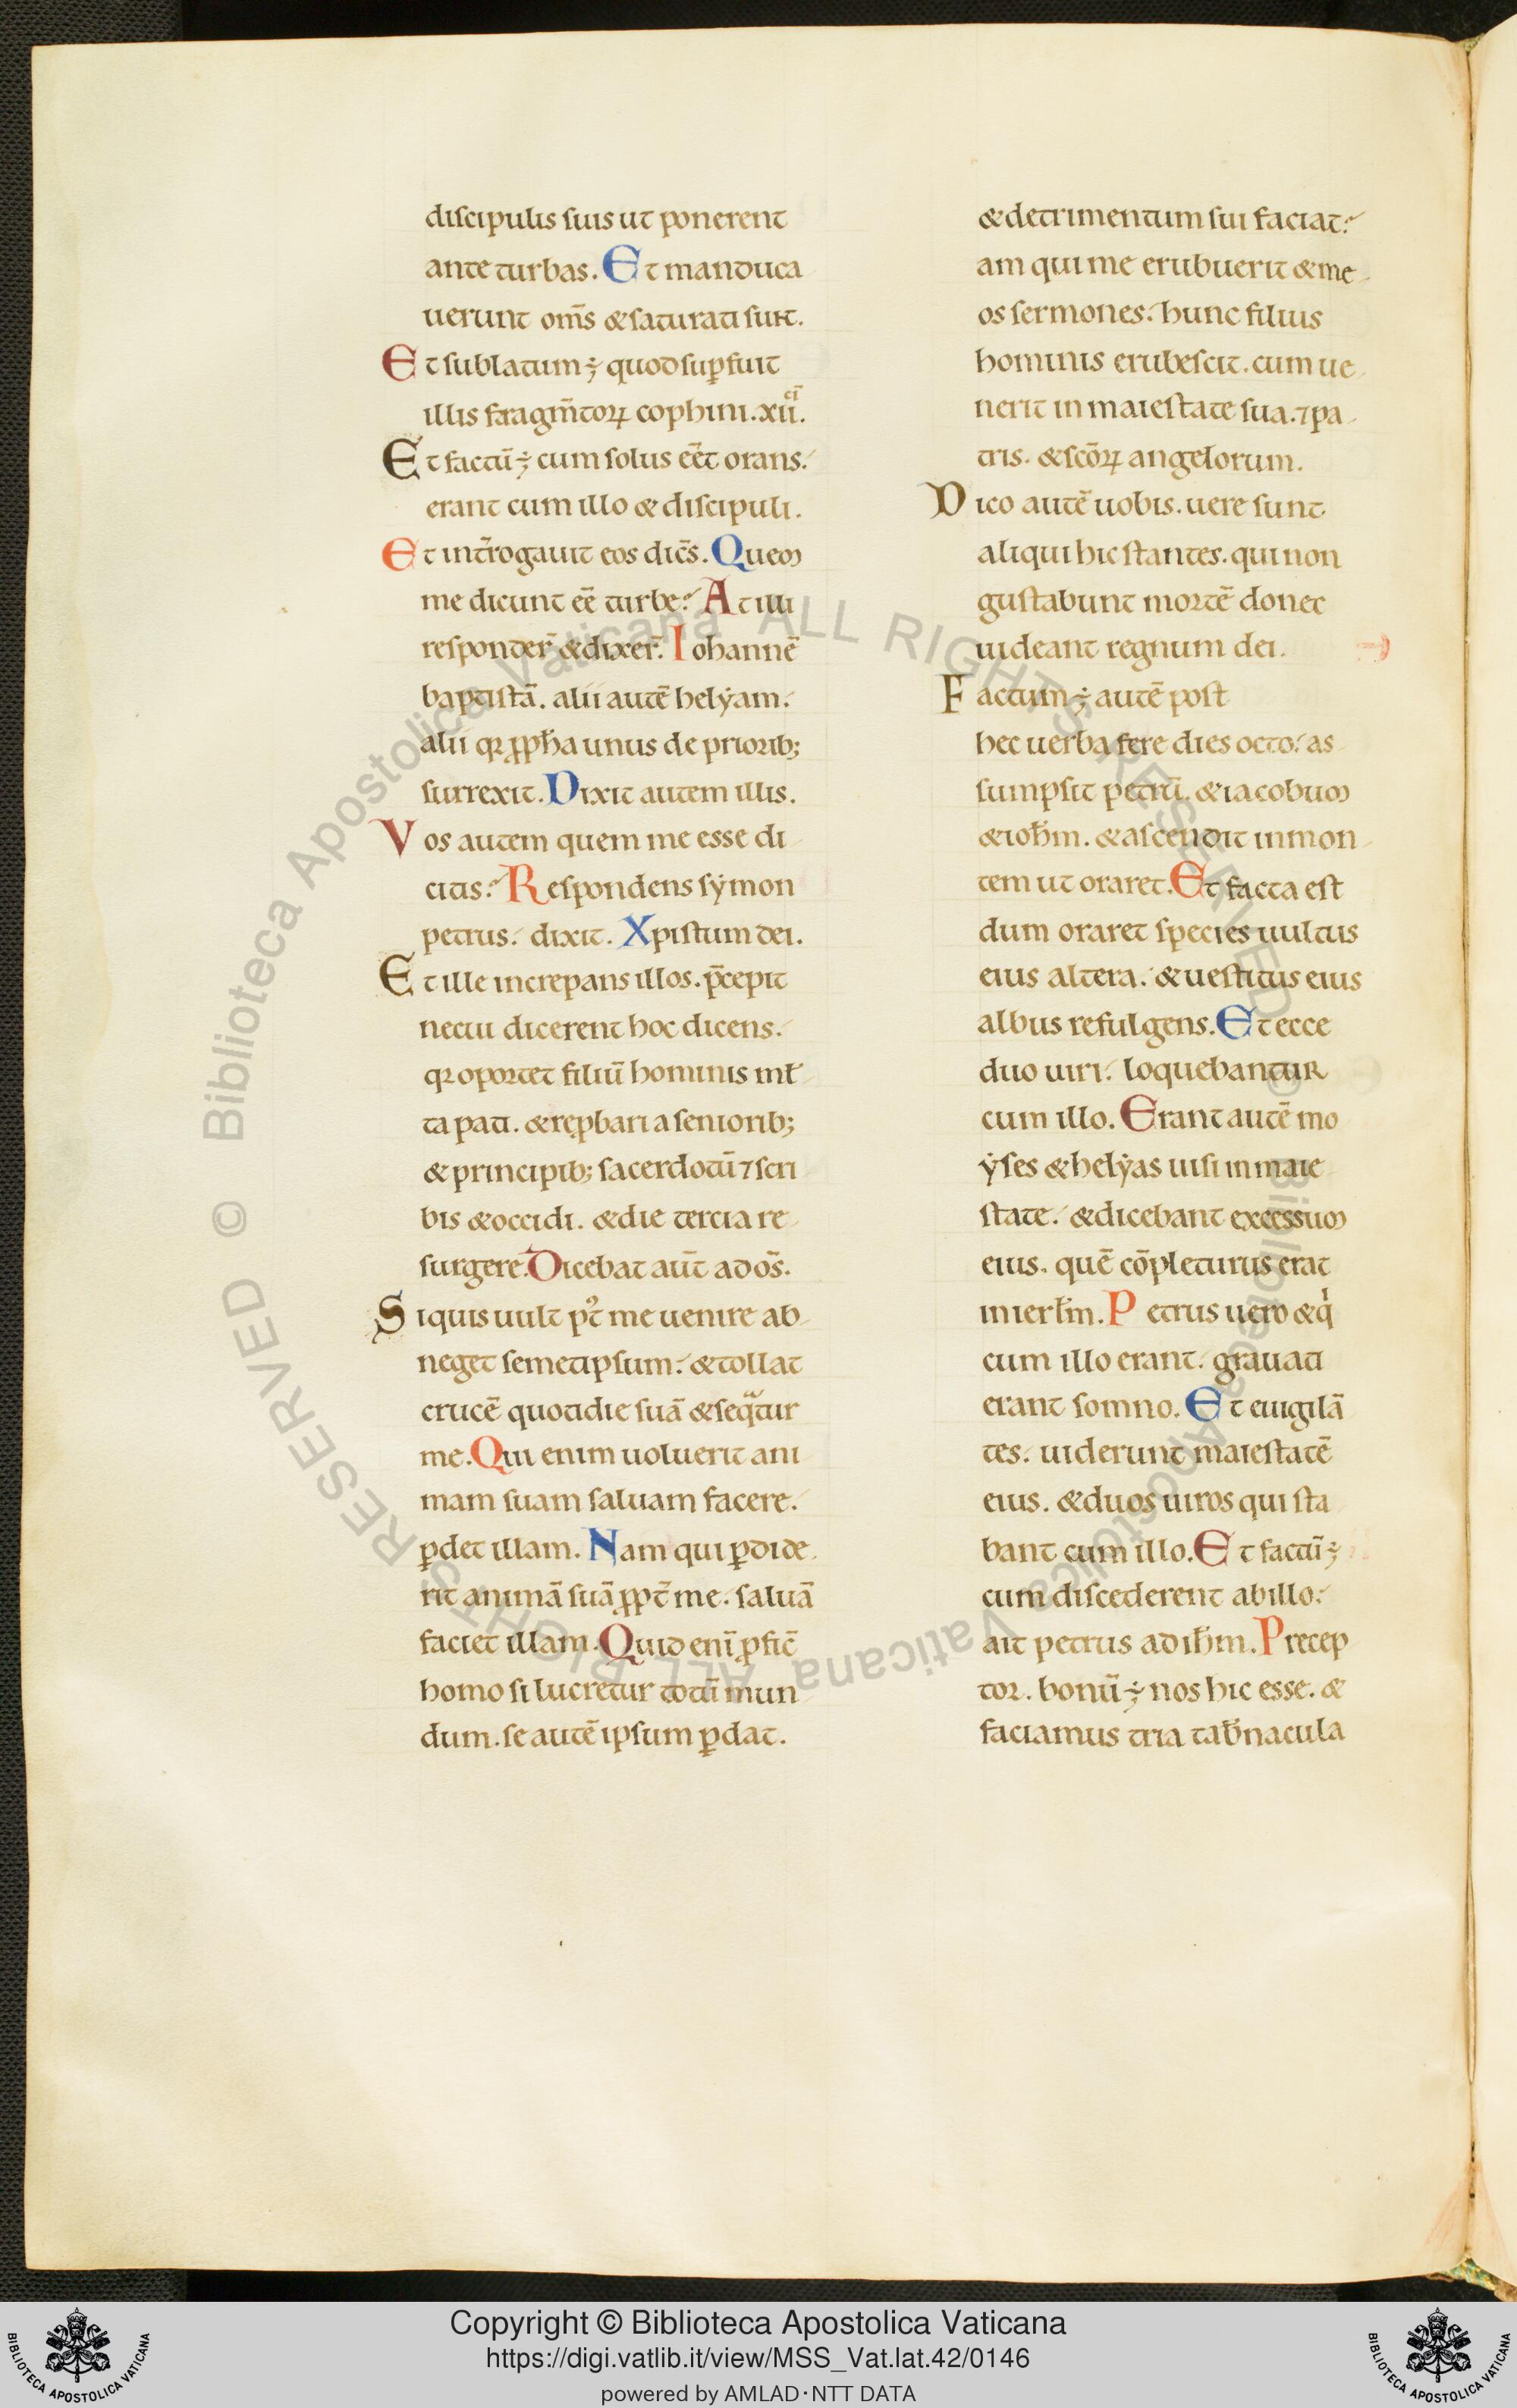 discipulis suis ut ponerent
ante turbas. Et manduca
uerunt om̃s &saturati sunt.
Et sublatum ÷ quod suꝑfuit
illis fragm̃toꝝ cophini .xii͂.
Et factũ ÷ cum solus eẽt orans.
erant cum illo & discipuli.
Et int̃rogauit eos dic̃s. Quem
me dicunt eẽ turbe? At illi
responder̃ &dixer̃. Iohannẽ
baptistã. alii autẽ helẏam.
alii qꝛ ꝓph̃a unus de priorib;
surrexit. Dixit autem illis.
Vos autem quem me esse di
citis? Respondens sẏmon
petrus. dixit. Xpistum dei.
Et ille increpans illos. p̃cepit
necui dicerent hoc dicens.
qꝛ oportet filiũ hominis ml̃
ta pati. &reꝓbari a seniorib;
&principib; sacerdotũ ⁊ scri
bis &occidi. &die tercia re
surgere. Dicebat aut̃ ad os̃.
Si quis uult p᷒t me uenire ab
neget semetipsum. &tollat
crucẽ quotidie suã &seqᷓtur
me. Qui enim uoluerit ani
mam suam saluam facere.
ꝑdet illam. Nam qui ꝑdide
rit animã suã ꝓpt̃ me. saluã
faciet illam. Quid eni᷑ ꝓfic̃
homo si lucretur totũ mun
dum. se autẽ ipsum ꝑdat.
&detrimentum sui faciat?
am qui me erubuerit &me
os sermones. hunc filius
hominis erubescit. cum ue
nerit in maiestate sua. ⁊ pa
tris. &scõꝝ angelorum.
Dico autẽ uobis. uere sunt
aliqui hic stantes. qui non
gustabunt mortẽ donec
uideant regnum dei.
Factum ÷ autẽ post
hec uerba fere dies octo. as
sumpsit petrũ. &iacobum
&ioh̃m. &ascendit in mon
tem ut oraret. Et facta est
dum oraret species uultus
eius altera. &uestitus eius
albus refulgens. Et ecce
duo uiri. loquebantur
cum illo. Erant autẽ mo
ẏses &helẏas uisi in maie
state. &dicebant excessum
eius. quẽ cõpleturus erat
in ierl̃m. Petrus uero &qͥ
cum illo erant. grauati
erant somno. Et euigilã
tes. uiderunt maiestatẽ
eius. &duos uiros qui sta
bant cum illo. Et factũ ÷
cum discederent ab illo.
ait petrus ad ih̃m. Precep
tor. bonũ ÷ nos hic esse. &
faciamus tria tab̃nacula
© Biblioteca Apostolica Vaticana ALL RIGHTS RESERVED
© Biblioteca Apostolica Vaticana ALL RIGHTS RESERVED
Copyright © Biblioteca Apostolica Vaticana
https://digi.vatlib.it/view/MSS_Vat.lat.42/0146
powered by AMLAD·NTT DATA
BIBLIOTECA APOSTOLICA VATICANA
BIBLIOTECA APOSTOLICA VATICANA